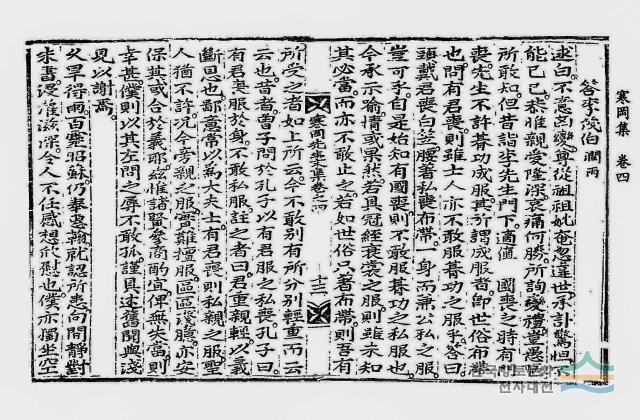 寒岡集 卷四
答李茂伯 潤雨
逑白。不意凶變。尊從祖祖妣奄忽違世。承訃驚怛。不
能已已。恭惟親愛隆深。哀痛何勝。所詢變禮。蠢愚
所敢知。但昔詣李先生門下。適値 國喪之時。有
喪。先生不許朞功成服。其所謂成服者。卽世俗布帶
也。問有君喪。則雖士人亦不敢服朞功之服乎。答曰。
頭戴君喪白笠。腰著私喪布帶。一身而兼公私之服。
豈可乎。自是始知有國喪。則不敢服朞功之私服也。
今承示喩。情或果然。若具冠絰衰裳之服。則雖未知
其必當。而亦不敢止之。若如世俗只著布帶。則吾有
寒岡先生文集卷之四 十三
所受之者如上所云。今不敢別有所分別輕重而云
云也。昔者曾子問於孔子以有君服之私喪。孔子曰。
有君喪服於身。不敢私服。註之者曰。君重親輕。以義
斷恩也。鄙意常以爲大夫士有君喪。則私親之服。聖
人猶不許。況今旁親之服。實難擅服。區區淺 亦安
保其或合於義耶。惟諸賢參商酌宜。俾無失當則
幸甚。僕則以其左問之辱。不敢孤。謹具述舊聞與淺
見以謝焉。
久旱得雨。百靈昭蘇。仍奉惠翰。就認所患向間。靜對
朱書。浸 滋深。令人不任感想欣慰也。僕亦獨坐空
전자대전